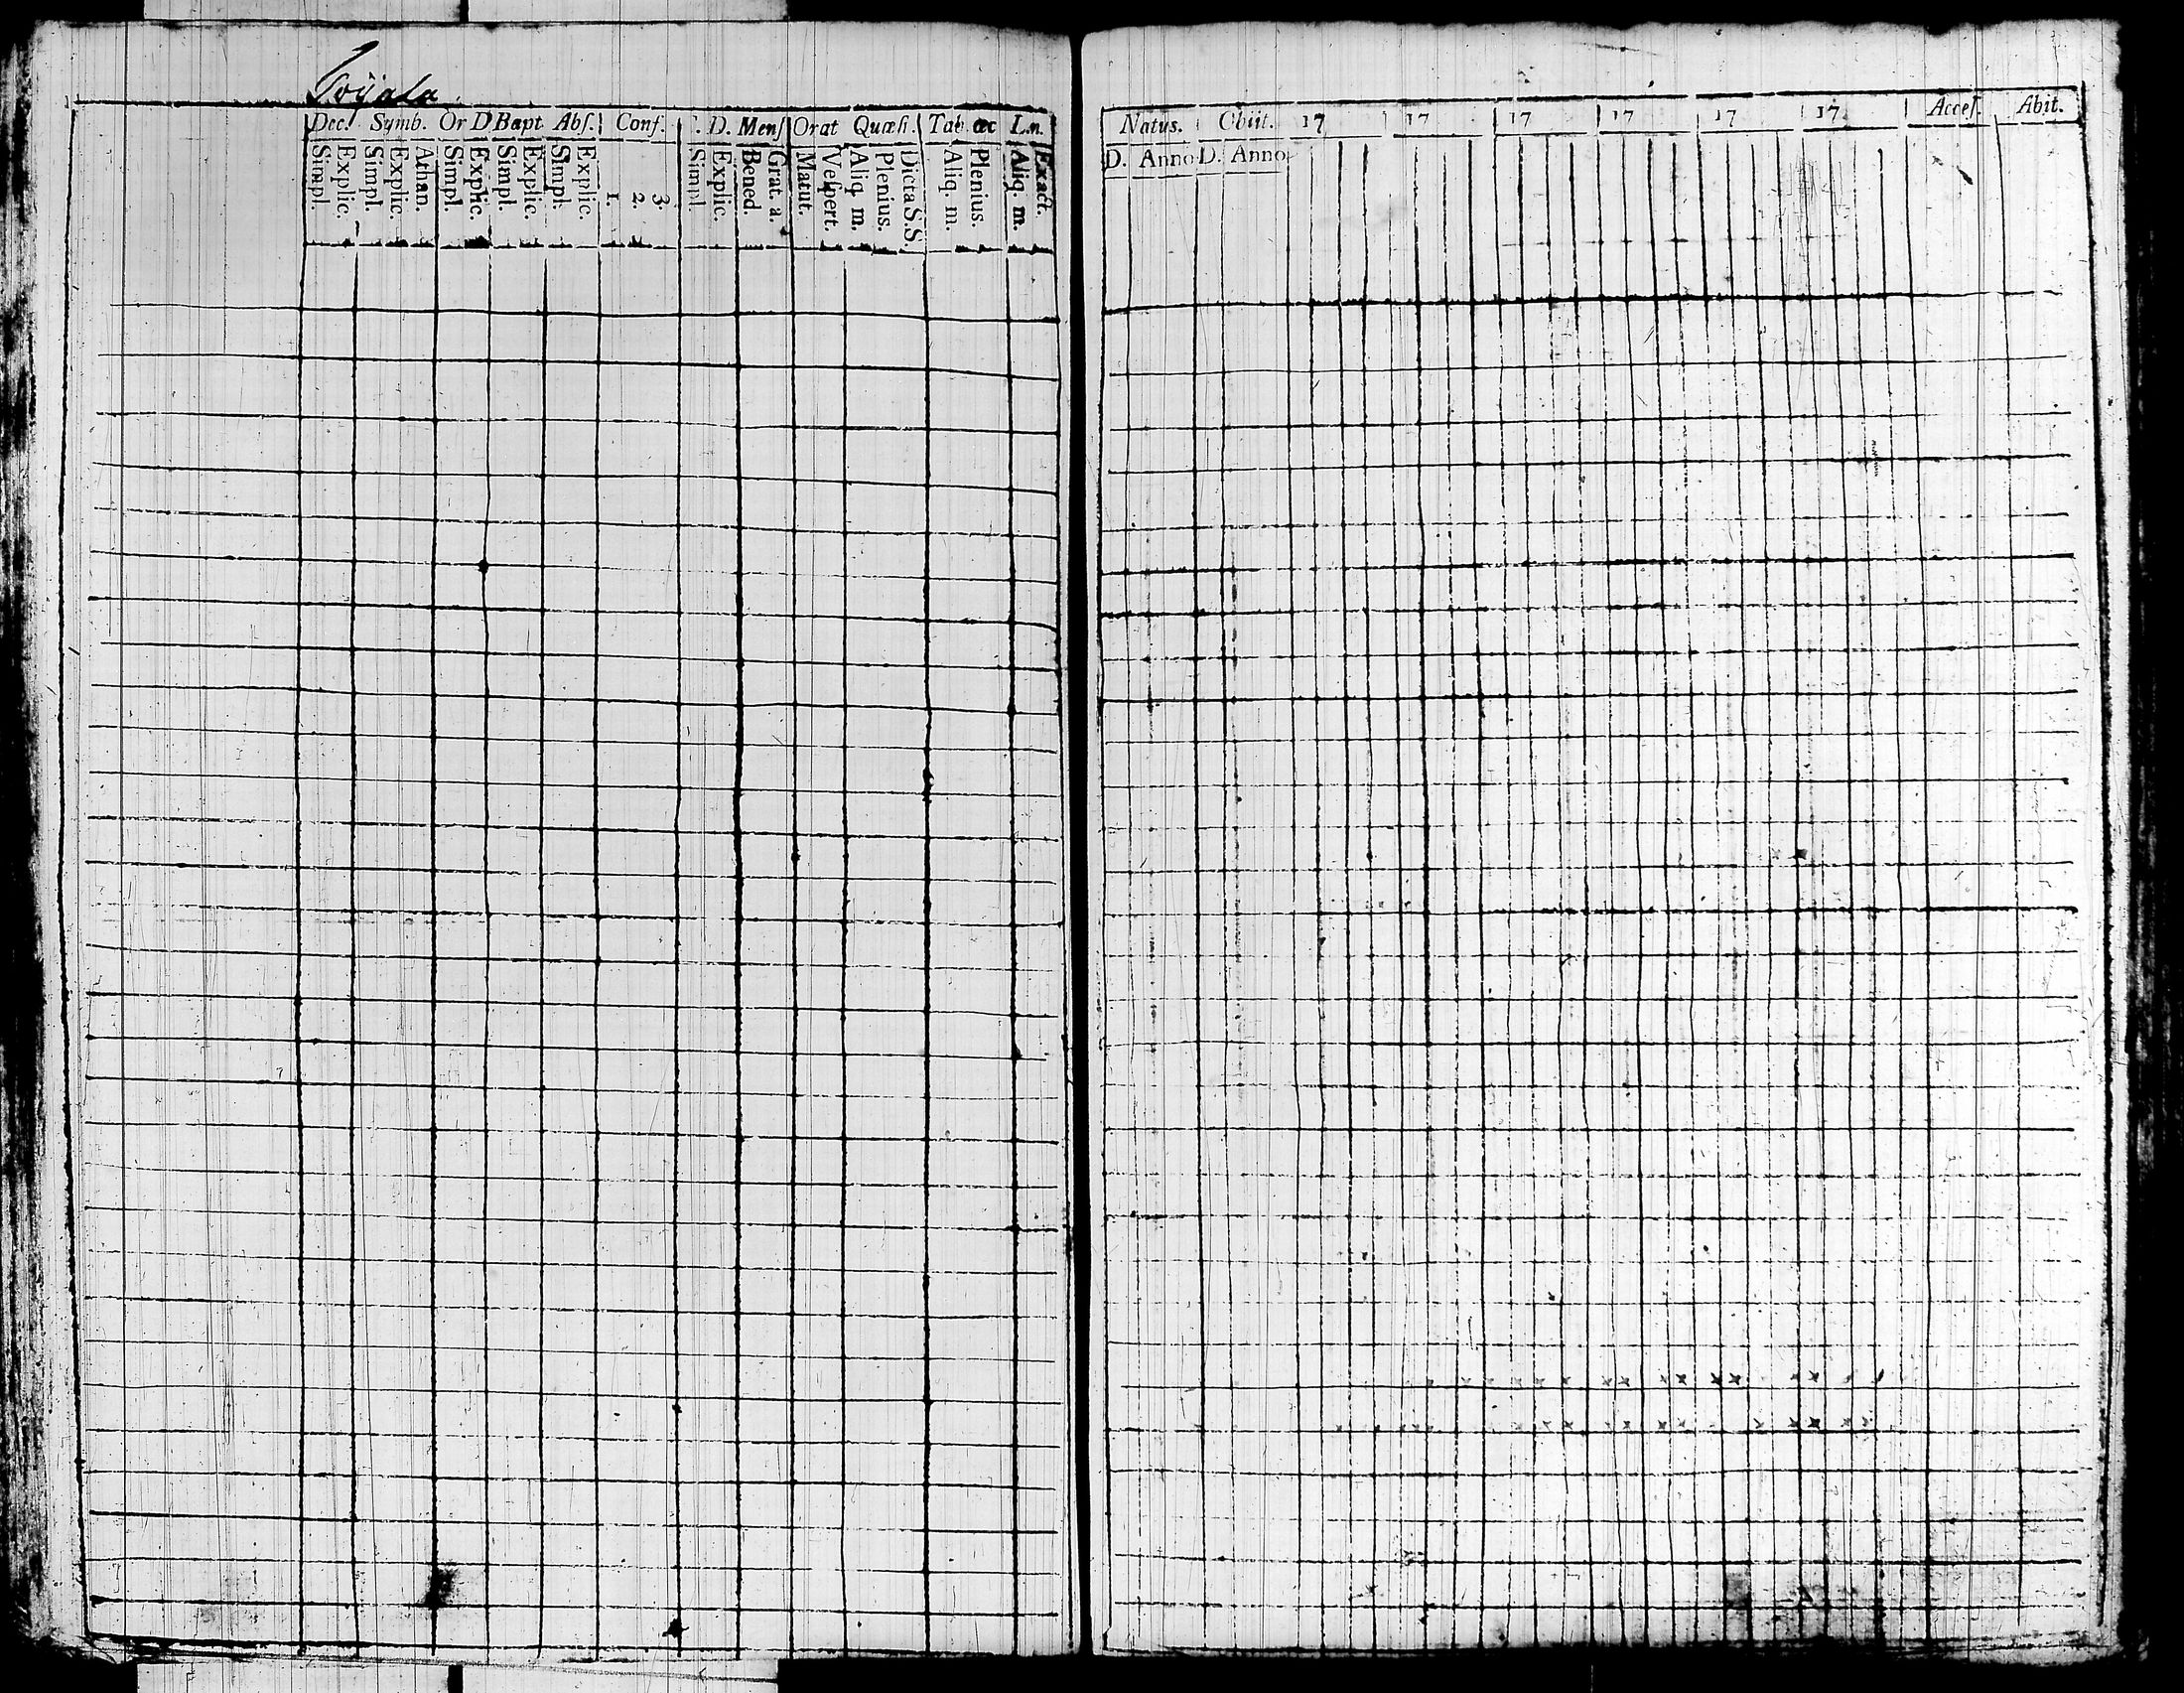 Toijala
Dec. Symb. Or D Bapt Abſ. Conf. . D. Menſ Orat Quæſt. Tab œc L.n.
Simpl. Explic. Simpl. Explic. Athan. Simpl. Explic. Simpl. Explic. Simpl. Explic. 1. 2. 3. Simpl. Explic. Bened. Grat. a. Matut. Veſpert. Aliq. m. Plenius. Dicta S.S. Aliq. m. Plenius. Aliq. m. Exact.
Natus. Obiit. 17 17 17 17 17 17 Acceſ. Abit.
D. Anno D. Anno